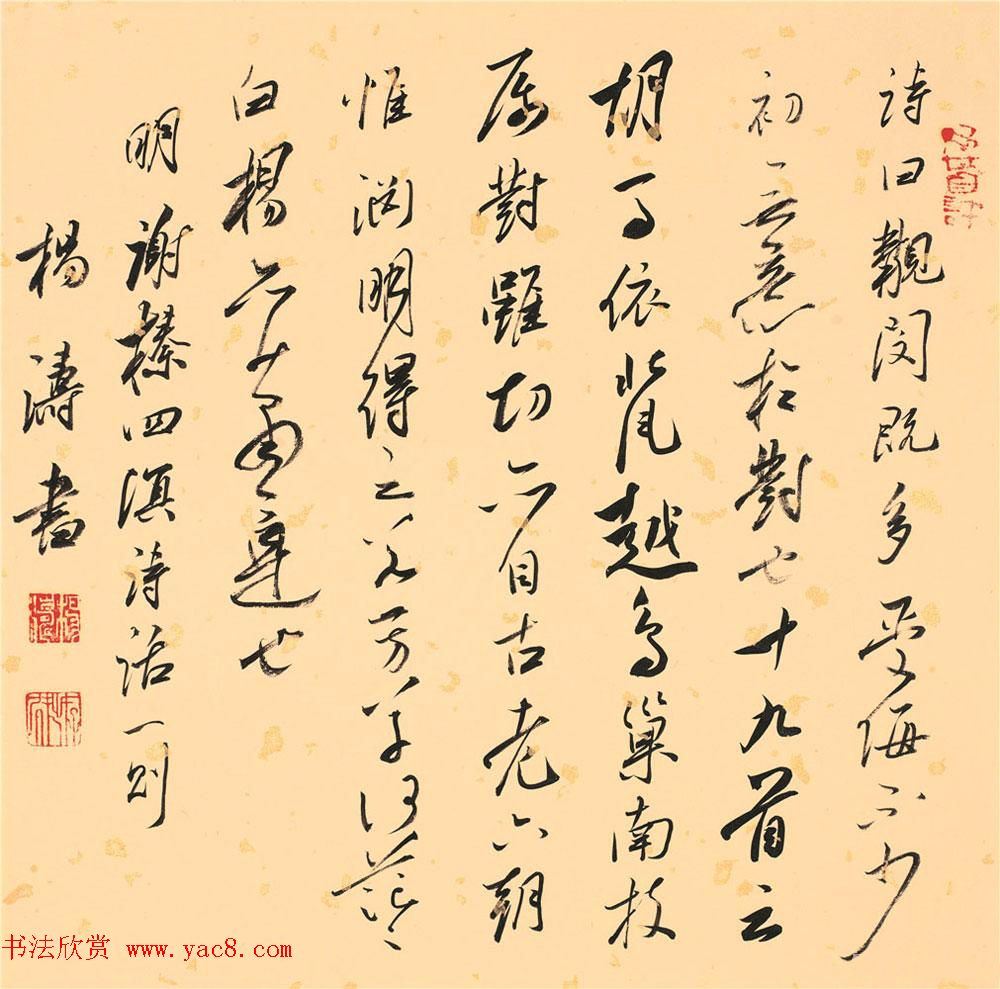 詩曰覯閔既多受侮不少
初無意於對也十九首云
胡馬依北風越鳥巢南枝
屬對雖切亦自古老六朝
惟淵明得之若芳草何茫〻
白楊亦蕭〻是也
明謝榛四溟詩話一則
楊濤書
书法欣赏 www.yac8.com